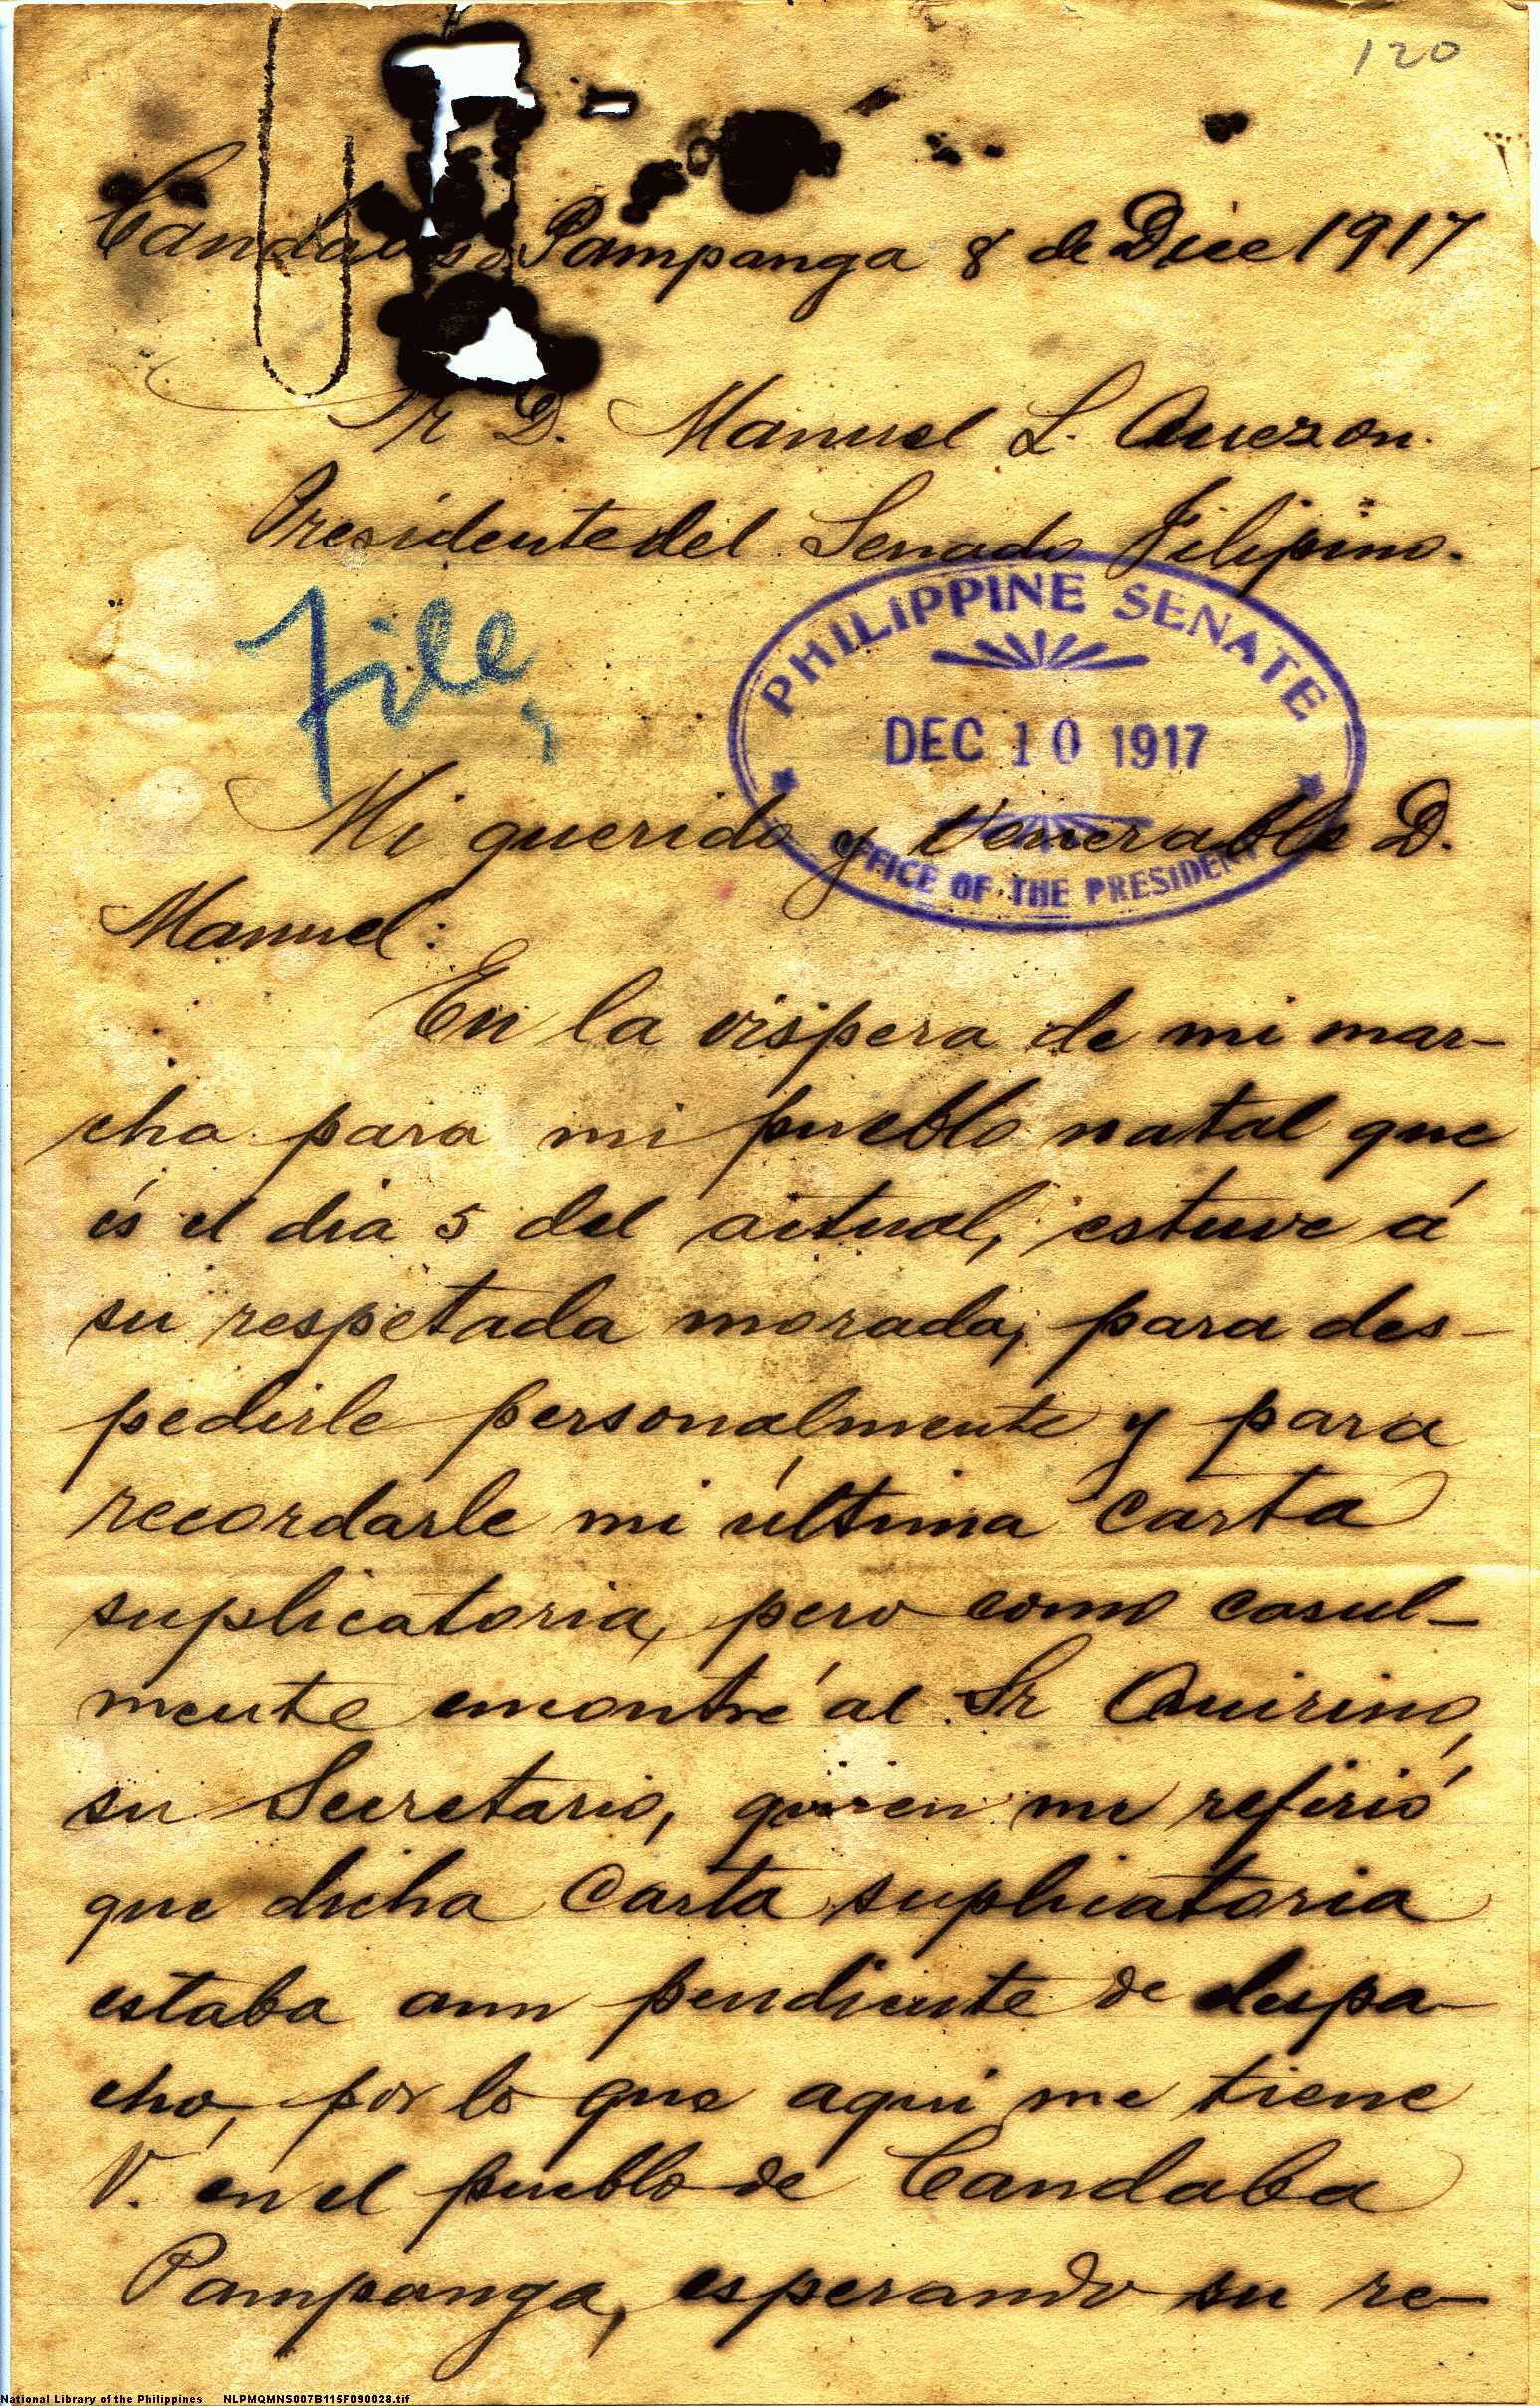 120
Candaba Pampanga 8 de Dice 1917
Sr D. Manuel L. Quezon.
Presidente del Senado Filipino.
File
PHILIPPINE SENATE
DEC 10 1917
OFFICE OF THE PRESIDENT
Mi querido y Venerable D.
Manuel:
En la vispera de mi mar-
cha para mi pueblo natal que
és el dia 5 del actual, estuve á
su respetada morada, para des-
pedirle personalmente y para
recordarle mi última carta
suplicatoria, pero como casul-
mente encontré al Sr Quirino,
su Secretario, quien me refirió
que dicha Carta suplicatoria
estaba aun pendiente de despa-
cho, por lo que aqui me tiene
V. en el pueblo de Candaba
Pampanga, esperando su re-
National Library of the Philippines NLPMQMNS007B115F090028.tif